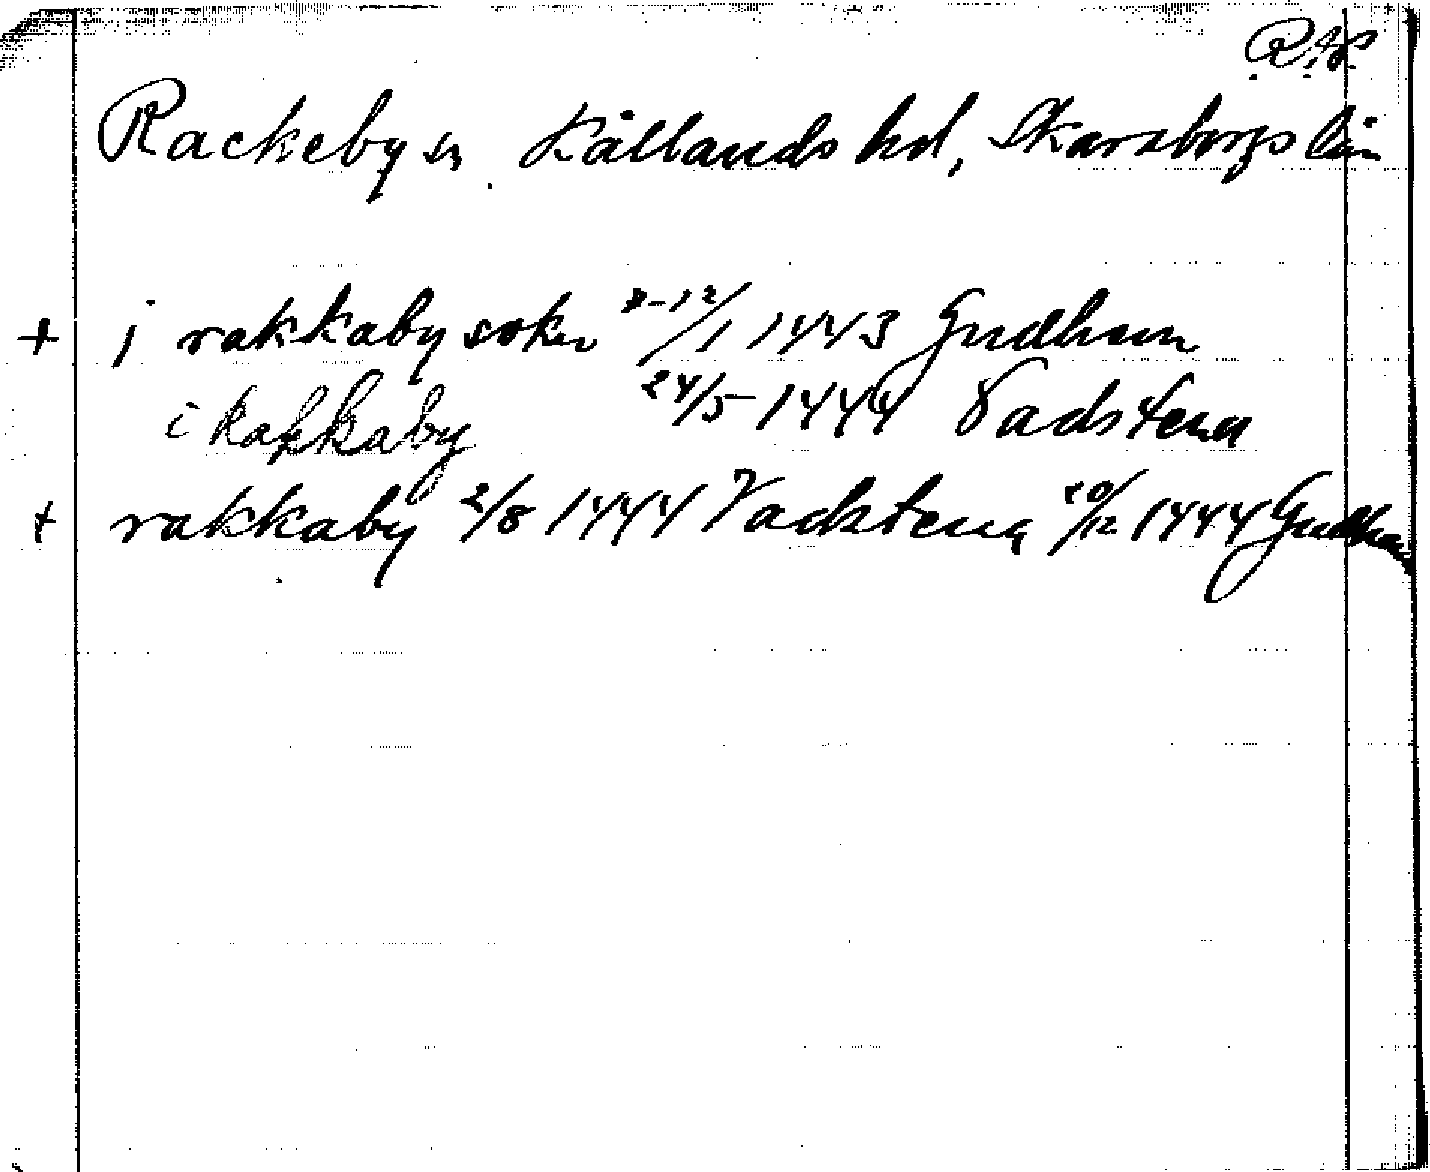 R.N.
Rackeby sn Kållands hd, Skaraborgs län
+ j rakkaby sokn 8-12/1 1443 Gudhem
i Rakkaby 24/5 1444 Vadstena
+ rakkaby 2/8 1444 Vadstena 10/12 1444 Gudhem